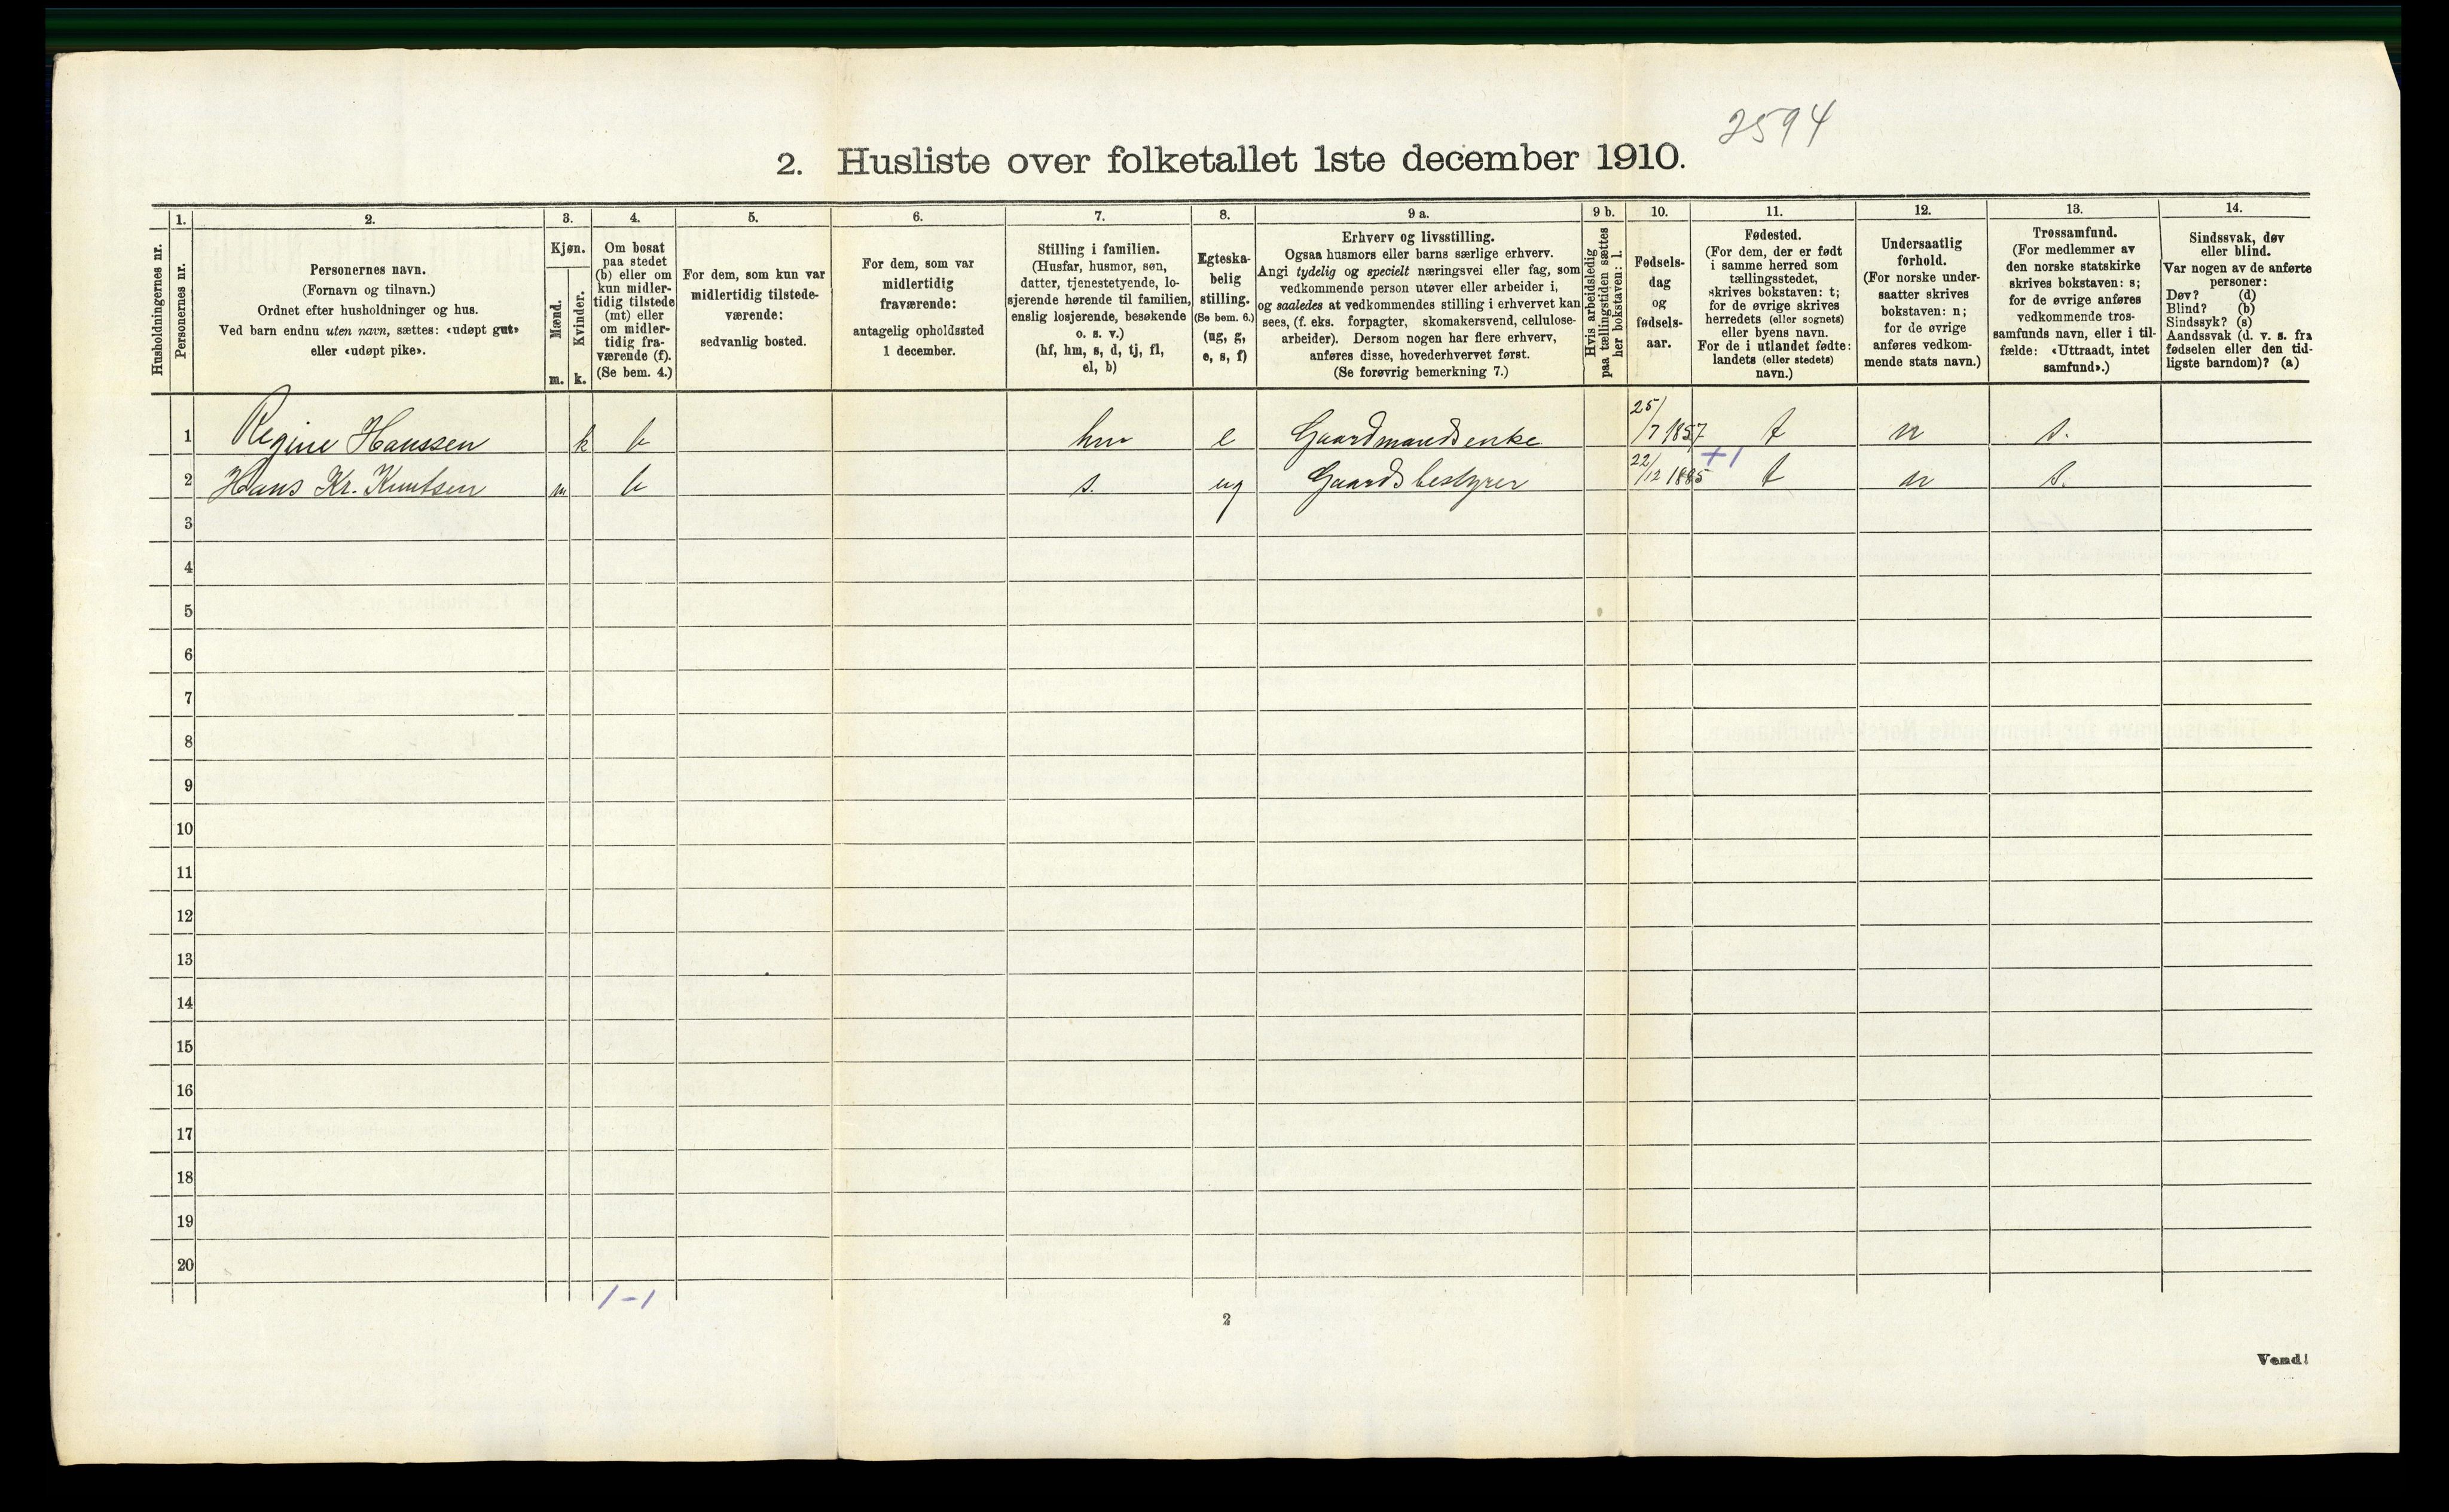 2594
2. Husliste over folketallet 1ste december 1910.
Husholdningernes nr.
1.
Personernes nr.
2.
Personernes navn.
(Fornavn og tilnavn.)
Ordnet efter husholdninger og hus.
Ved barn endnu uten navn, sættes: «udøpt gut»
eller «udøpt pike».
3.
Kjøn.
Mænd.
m.
Kvinder.
k.
4.
Om bosat
paa stedet
(b) eller om
kun midler-
tidig tilstede
(mt) eller
om midler-
tidig fra-
værende (f).
(Se bem. 4.)
5.
For dem, som kun var
midlertidig tilstede-
værende:
sedvanlig bosted.
6.
For dem, som var
midlertidig
fraværende:
antagelig opholdssted
1 december.
7.
Stilling i familien.
(Husfar, husmor, søn,
datter, tjenestetyende, lo-
sjerende hørende til familien,
enslig losjerende, besøkende
o. s. v.)
(hf, hm, s, d, tj, fl,
el, b)
8.
Egteska-
belig
stilling.
(Se bem. 6.)
(ug, g,
e, s, f)
9 a.
Erhverv og livsstilling.
Ogsaa husmors eller barns særlige erhverv.
Angi tydelig og specielt næringsvei eller fag, som
vedkommende person utøver eller arbeider i,
og saaledes at vedkommendes stilling i erhvervet kan
sees, (f. eks. forpagter, skomakersvend, cellulose-
arbeider). Dersom nogen har flere erhverv,
anføres disse, hovederhvervet først.
(Se forøvrig bemerkning 7.)
9 b.
Hvis arbeidsledig
paa tællingstiden sættes
her bokstaven: l.
10.
Fødsels-
dag
og
fødsels-
aar.
11.
Fødested.
(For dem, der er født
i samme herred som
tællingsstedet,
skrives bokstaven: t;
for de øvrige skrives
herredets (eller sognets)
eller byens navn.
For de i utlandet fødte:
landets (eller stedets)
navn.)
12.
Undersaatlig
forhold.
(For norske under-
saatter skrives
bokstaven: n;
for de øvrige
anføres vedkom-
mende stats navn.)
13.
Trossamfund.
(For medlemmer av
den norske statskirke
skrives bokstaven: s;
for de øvrige anføres
vedkommende tros-
samfunds navn, eller i til-
fælde: «Uttraadt, intet
samfund».)
14.
Sindssvak, døv
eller blind.
Var nogen av de anførte
personer:
Døv? (d)
Blind? (b)
Sindssyk? (s)
Aandssvak (d. v. s. fra
fødselen eller den tid-
ligste barndom)? (a)
1 Regine Hanssen k b hm e Gaardmandsenke 25/7 1857 t n s.
+1
2 Hans Kr. Knutsen m b s. ug Gaardsbestyrer 22/12 1885 t n s.
3
4
5
6
7
8
9
10
11
12
13
14
15
16
17
18
19
20
1-1
2
Vend!